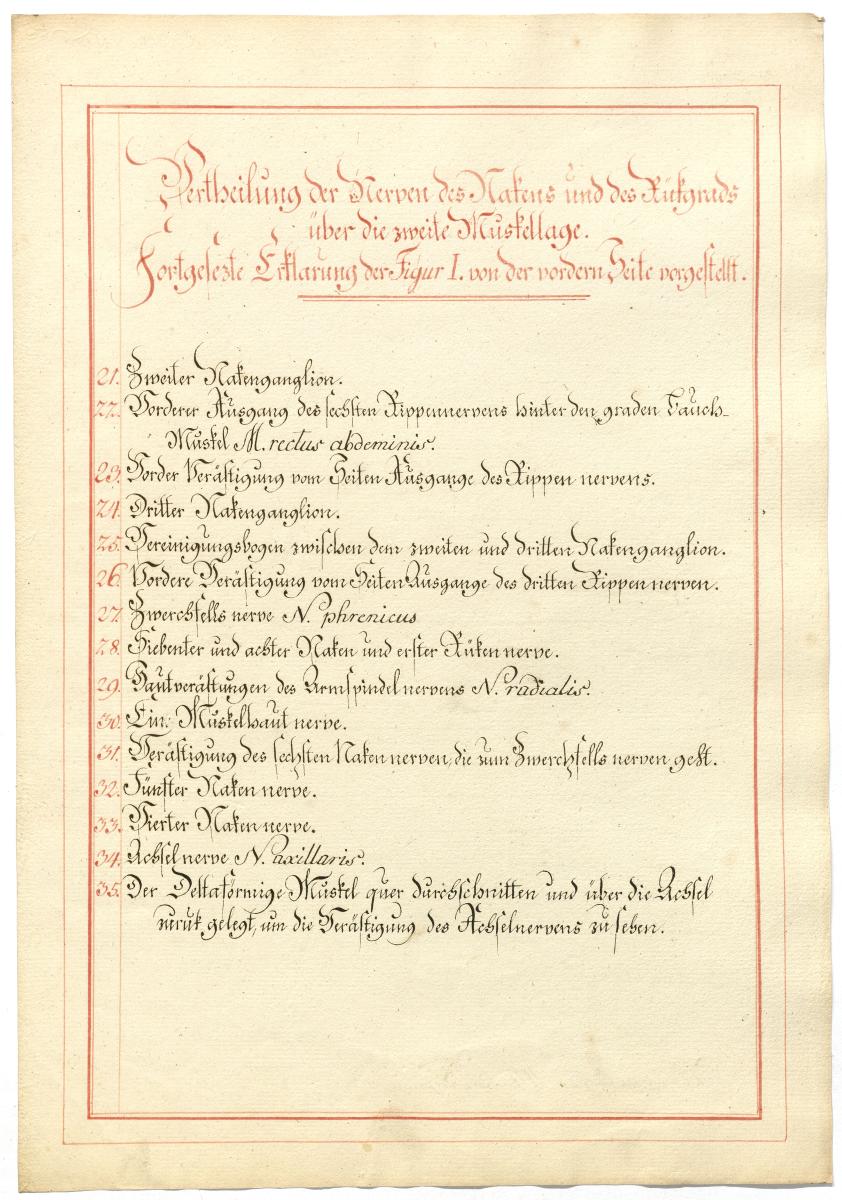 Vertheilung der Nerven des Nakens und des Rükgrads
über die zweite Muskellage.
Fortgesezte Erklarung der Figur I. von der vordern Seite vorgestellt.
21. Zweiter Nakenganglion.
22. Vorderer Ausgang des sechsten Rippennervens hinter den graden Bauch-
Muskel M. rectus abdeminis.
23. Vorder Verästigung vom Seiten Ausgange des Rippen nervens.
24. Dritter Nakenganglion.
25. Vereinigungsbogen zwischen dem zweiten und dritten Nakenganglion.
26. Vordere Verästigung vom Seiten Ausgange des dritten Rippen nerven.
27. Zwerchfells nerve N. phrenicus
28. Siebenter und achter Naken und erster Rüken nerve.
29. Hautverästungen des Armspindel nervens N. radialis.
30. Ein: Muskelhaut nerve.
31. Verästigung des sechsten Naken nerven, die zum Zwerchfells nerven geht.
32. Fünfter Naken nerve.
33. Vierter Naken nerve.
34. Achsel nerve N. axillaris.
35. Der Deltaförmige Muskel quer durchschnitten und über die Achsel
zuruk gelegt, um die Verästigung des Achselnervens zu sehen.